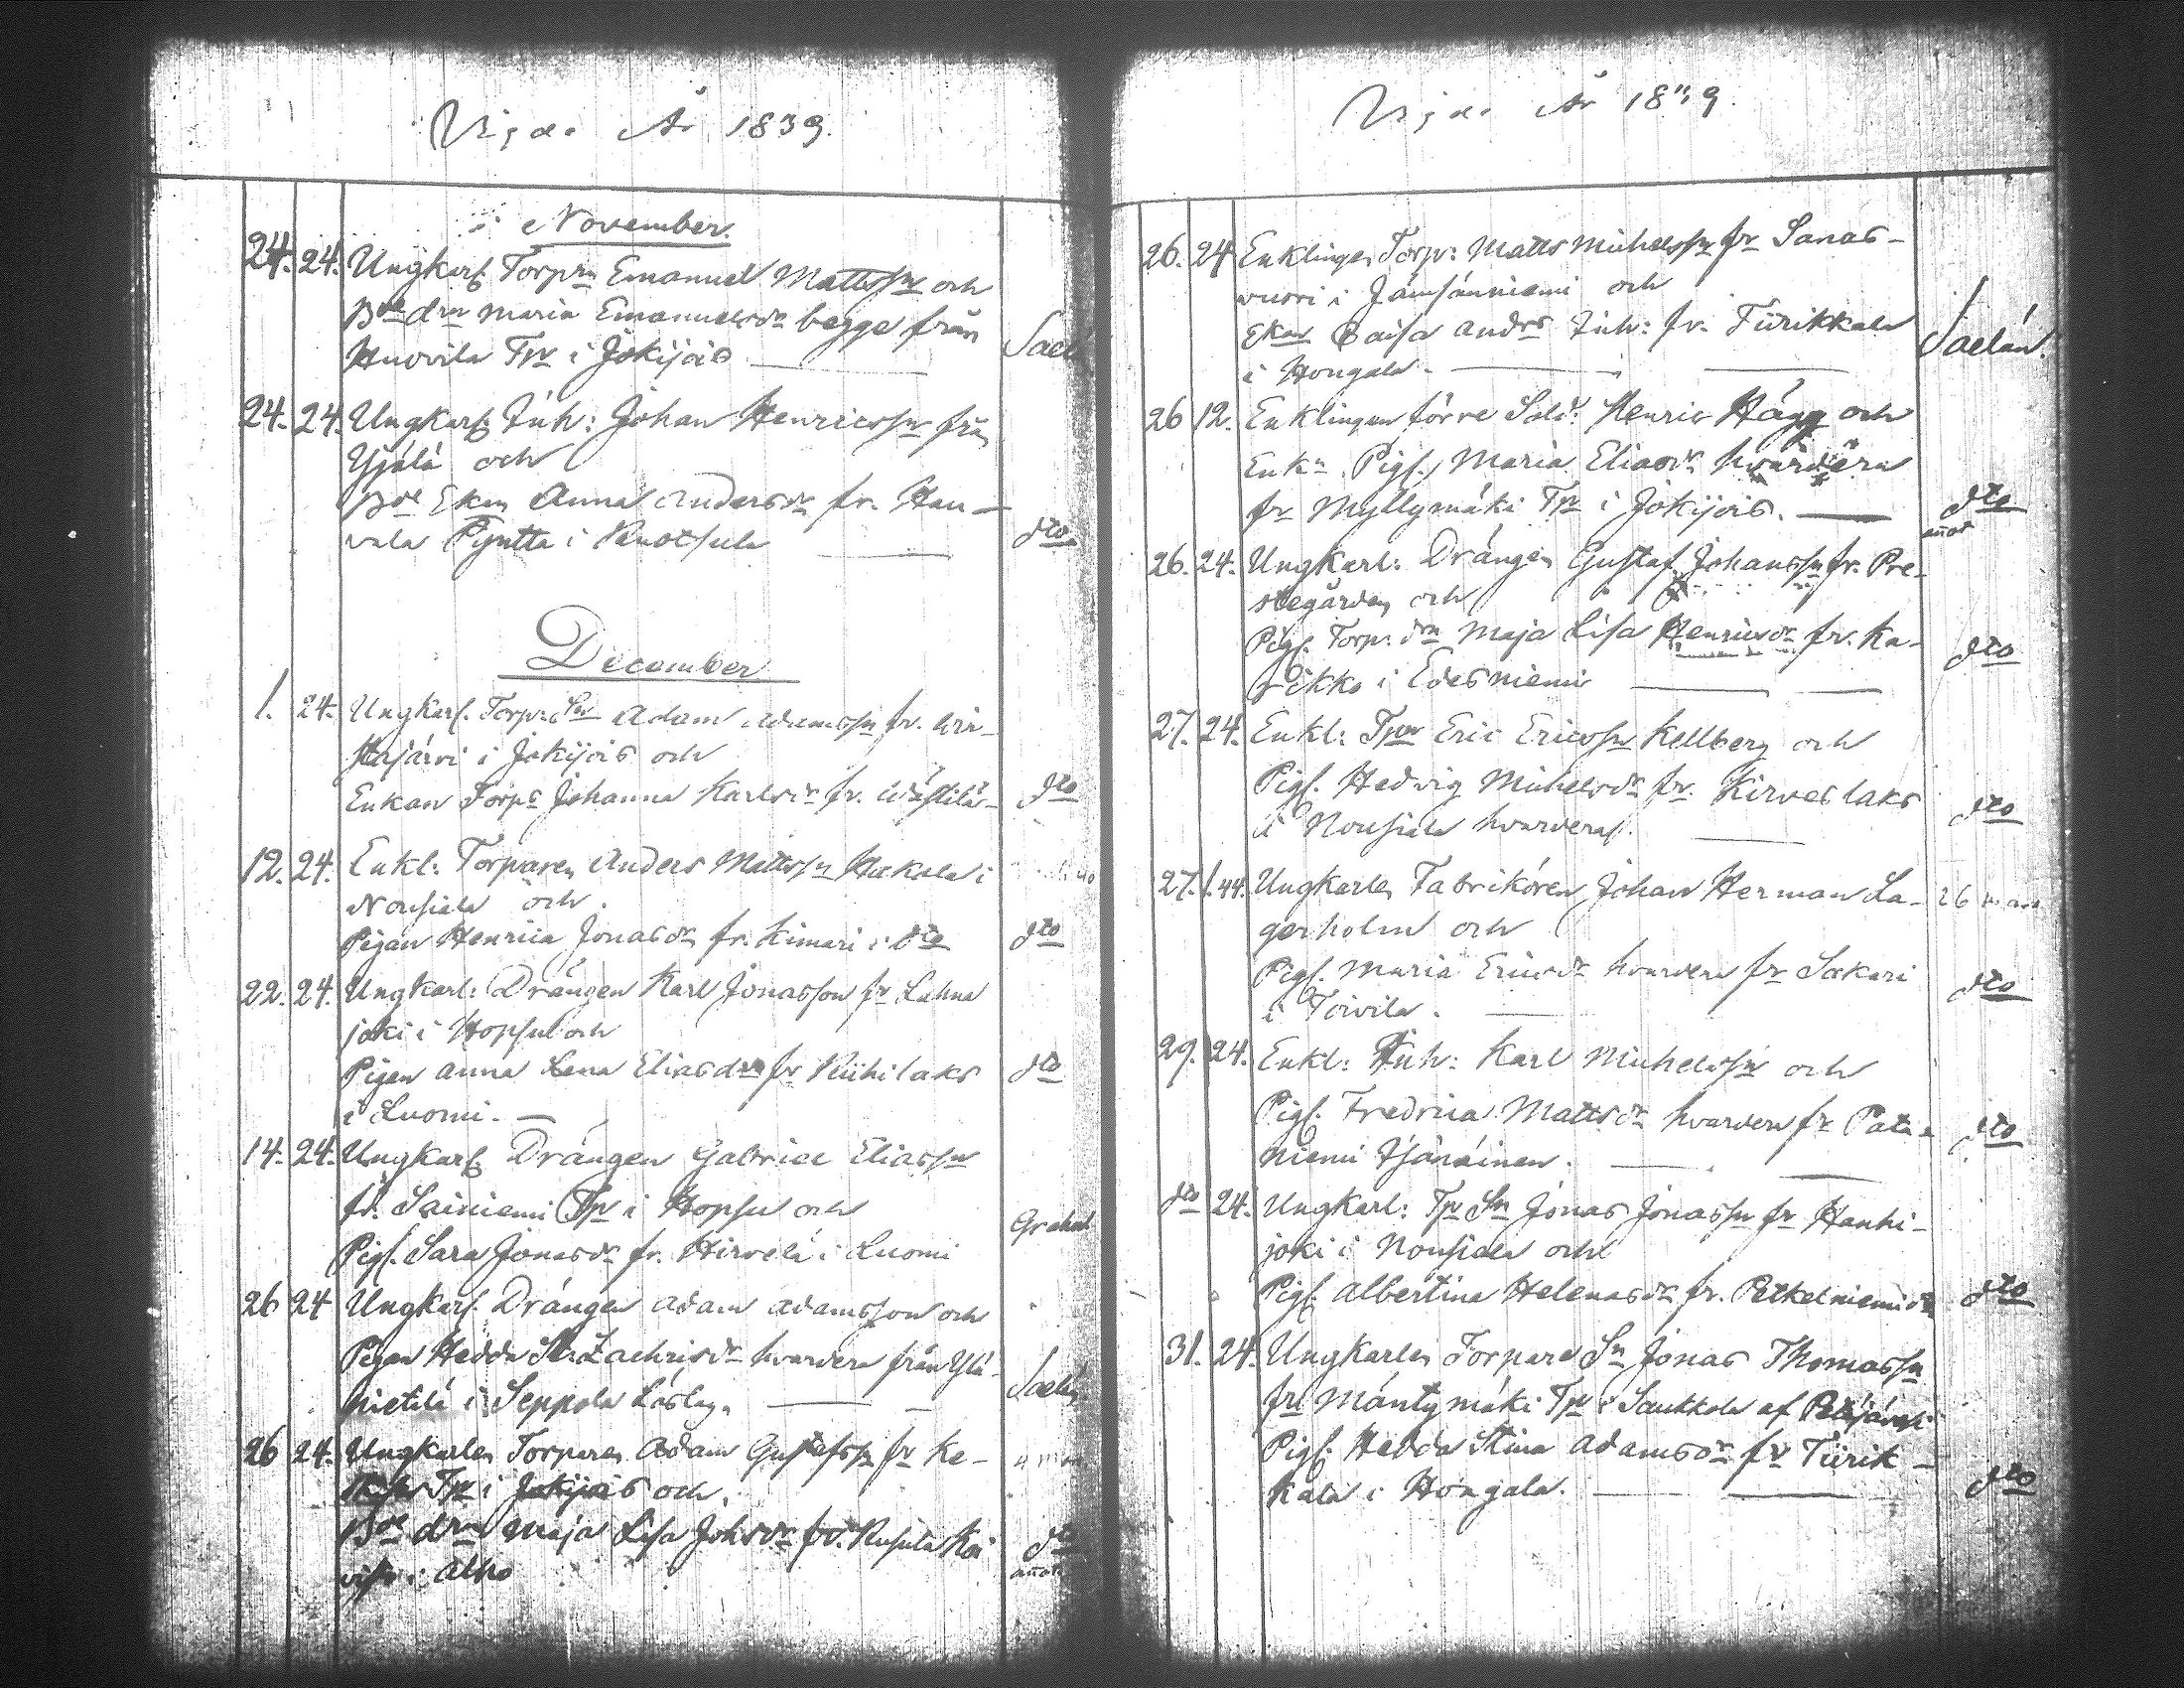 Vigde År 1839.
November.
24. 24. Ungkarl. Torpn Emanuel Mattssn och
Bde drn Maria Emanuelsdr begge från
Huovila Tp i Jokijois Sael
24. 24. Ungkarl. Inh: Johan Henricssn från
Yjälä och
Bde Ekan Anna Andersdr fr. Hau-
vala Pyntta i Ruotsula dto
December
1. 24. Ungkarl. Torp: Sn Adam Adamssn fr.
i Jokijois och
Enkan Torps Johanna Karlsdr fr. dto
12. 24. Enkl: Torparen Anders Mattssn Hakala i
Nousiala och
Pigan Henrica Jonasdr fr. Kimari i dto dto
22. 24. Ungkarl: Drängen Karl Jonasson fr Lahna
joki i Hopsu och
Pigan Anna Lena Eliasdr fr Riihilaks dto
i Luomi.
14. 24. Ungkarl. Drängen Gabriel Eliassn
fr. Sainiemi Tp i Hopsu och
Pigs. Sara Jonasdr fr. Hirvelä i Luomi Grahn
26 24 Ungkarl. Drängen Adam Adamsson och
Pigan Hedda Zachrisdr hvardera från Ylä-
nietilä i Seppola Löslag. Saelán
26 24. Ungkarlen Torparen Adam Gustafssn fr Ke-
Tp i Jokijois och
Bde drn Maja Lisa Johsdr fr. Rusula Koi dto
i Alho
Vigde År 1839
26. 24 Enklingen Torp: Matts Michelssn fr Sanas-
vuori i Jämsänniemi och
Ekan Caisa Andrs Inh: fr. Tiirikkala Saelán.
i Hongala.
26 12. Enklingen förre Sold. Henric Hägg och
Enkn Pigs. Maria Eliasdr hvardera
fr Myllymäki Tp i Jokijois. dto
26. 24. Ungkarl: Drängen Gustaf Johanssn fr. Pre-
stegården och
Pigs. Torp: drn Maja Lisa Henricsdr fr. Ka- dto
rikko i Edesniemi
27. 24. Enkl: Tpn Eric Ericssn Kellberg och
Pigs. Hedvig Michelsdr fr. Kirveslaks dto
i Nousiala hvardera.
27. 1.44. Ungkarlen Fabrikören Johan Herman La-
gerholm och
Pigs. Maria Ericsdr hvardera fr Sakari dto
i Toivila.
29. 24. Enkl: Inh: Karl Michelssn och
Pigs. Fredrica Mattsdr hvardera fr Pata- dto
niemi Hjänäinen.
dto 24. Ungkarl: Tp Sn Jonas Jonassn fr Hanhi-
joki i Nousiala och
Pigs. Albertina Helenasdr fr. Petkelniemi dto dto
31. 24. Ungkarlen Torpare Sn Jonas Thomassn
fr Mäntymäki Tp i Saukkola af Petäjävesi
Pigs. Hedda Stina Adamsdr fr Tiirik-
kala i Hongala. dto